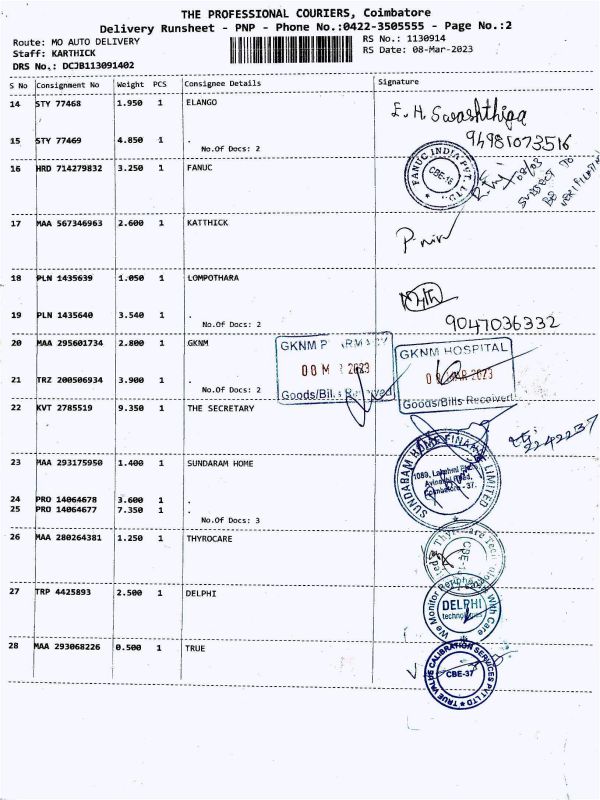 THE PROFESSIONAL COURIERS, Coimbatore
Delivery Runsheet - PNP - Phone No.:0422-3505555 - Page No.:2
Route: MO AUTO DELIVERY
RS No.: 1130914
Staff: KARTHICK
RS Date: 08-Mar-2023
DRS No.: DCJB113091402
S No Consignment No Weight PCS Consignee Details Signature
14 STY 77468 1.950 1 ELANGO
E. H. Swashthigaa
15 STY 77469 4.850 1 .
94981073516
No.Of Docs: 2
16 HRD 714279832 3.250 1 FANUC
FANUC INDIA PVT. LTD
CBE-18
08/03
SUBJECT TO
BE
17 MAA 567346963 2.600 1 KATTHICK
18 PLN 1435639 1.050 1 LOMPOTHARA
19 PLN 1435640 3.540 1 .
No.Of Docs: 2
9047036332
20 MAA 295601734 2.800 1 GKNM
GKNM
GKNM HOSPITAL
2023
MAR 2023
Goods/Bills Received
Goods/Bills Received
21 TRZ 200506934 3.900 1 .
No.Of Docs: 2
22 KVT 2785519 9.350 1 THE SECRETARY
2242237
23 MAA 293175950 1.400 1 SUNDARAM HOME
SUNDARAM HOME FINANCE LIMITED
Coimbatore - 37.
24 PRO 14064678 3.600 1 .
25 PRO 14064677 7.350 1 .
No.Of Docs: 3
26 MAA 280264381 1.250 1 THYROCARE
27 TRP 4425893 2.500 1 DELPHI
DELPHI
technologies
We Monitor With Care
28 MAA 293068226 0.500 1 TRUE
TRUE VALUE CALIBRATION SERVICES PVT LTD
CBE-37